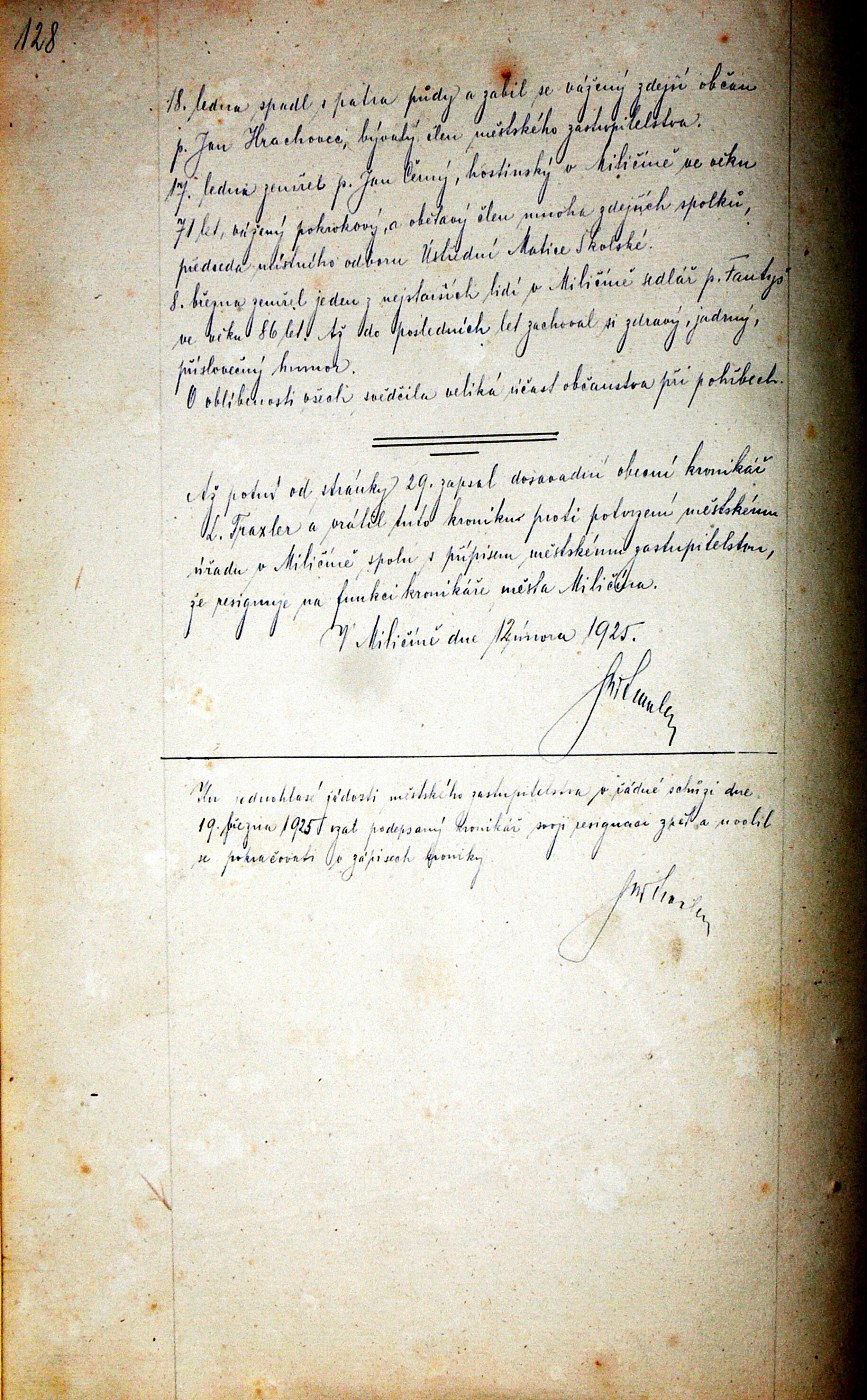 128
18. ledna spadl s patra půdy a zabil se vážený zdejší občan
p. Jan Hrachovec, bývalý člen městského zastupitelstva.
17. ledna zemřel p. Jan Černý, hostinský v Miličíně ve věku
71 let, vážený pokrokový, a obětavý člen mnoha zdejších spolků,
předseda místního odboru Ústřední Matice Školské.
8. března zemřel jeden z nejstarších lidí v Miličíně sedlář p. Fantys
ve věku 86 let. Až do posledních let zachoval si zdravý, jadrný,
příslovečný humor.
O oblíbenosti všech svědčila veliká účast občanstva při pohřbech.
Až potud od stránky 29. zapsal dosavadní obecní kronikář
L. Traxler a vrátil tuto kroniku proti potvrzení městskému
úřadu v Miličíně spolu s přípisem městskému zastupitelstvu,
že resignuje na funkci kronikáře města Miličína.
V Miličíně dne 12 února 1925.
Ku jednohlasé žádosti městského zastupitelstva v řádné schůzi dne
19. března 1925 vzal podepsaný kronikář svoji resignaci zpět a uvolil
se pokračovati v zápisech kroniky